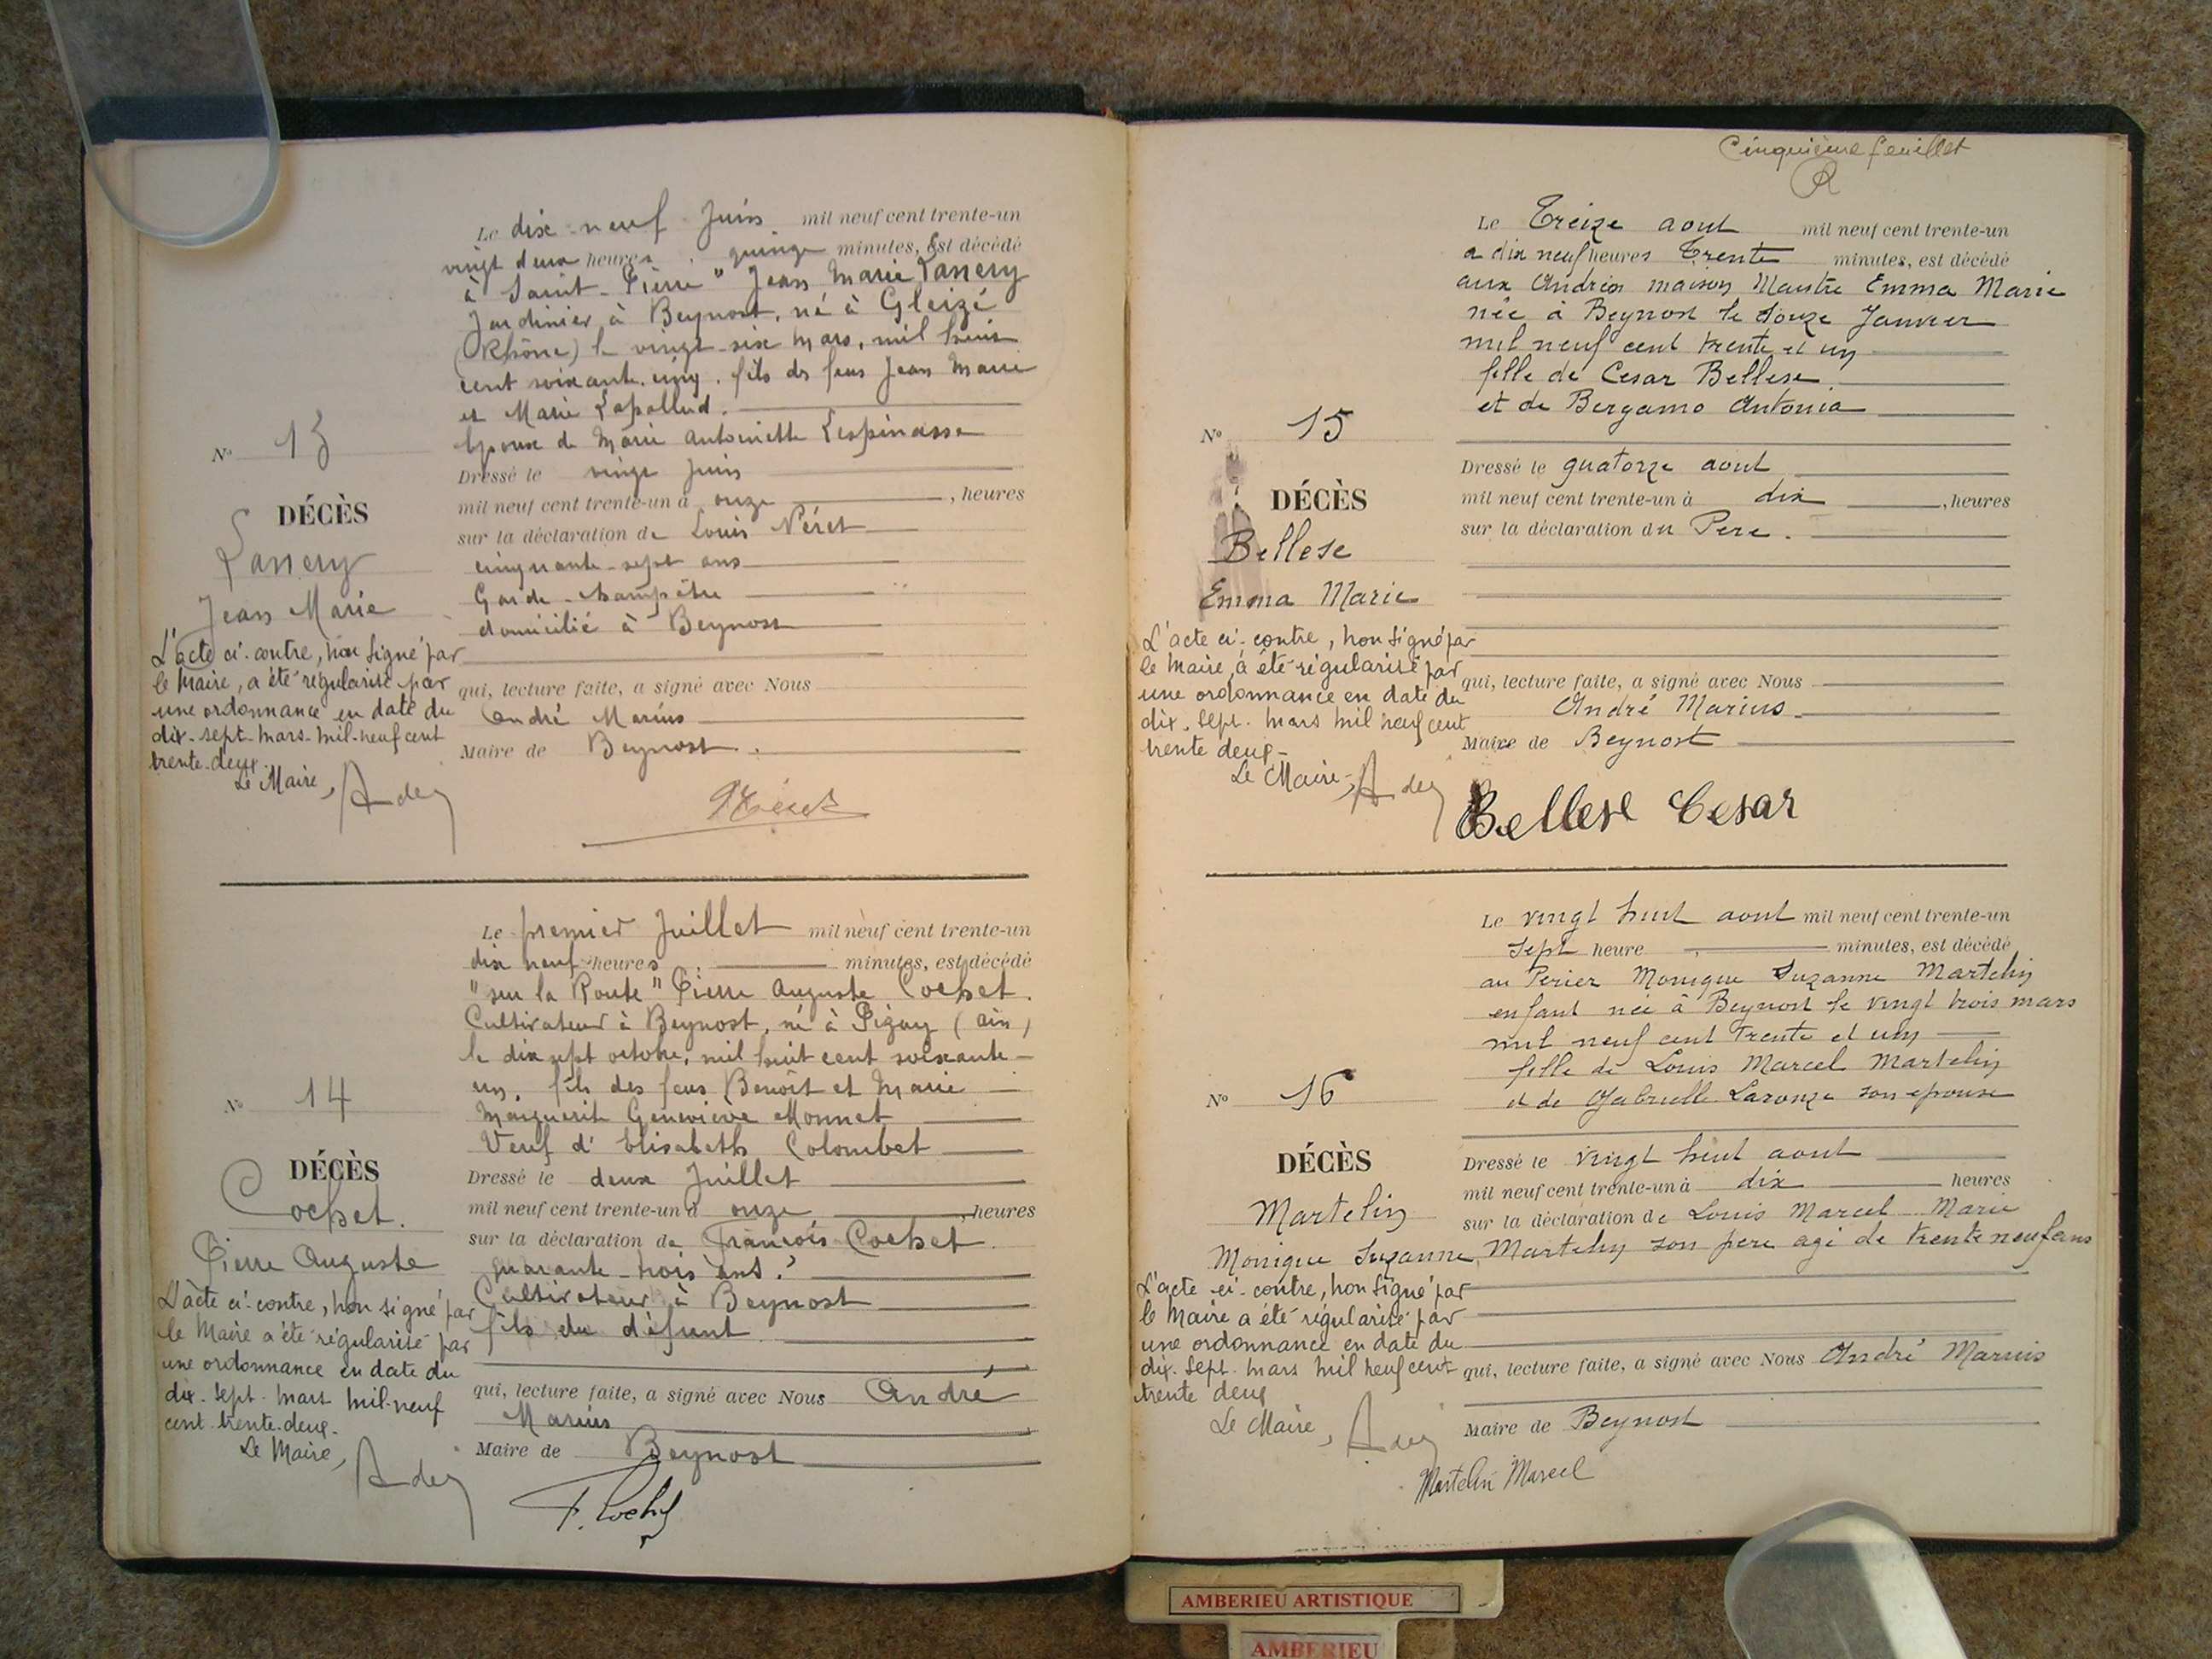 Le dix-neuf Juin mil neuf cent trente-un
vingt deux heures, quinze minutes, Est décédé
à Saint-Pierre" Jean Marie Lannery
Jardinier à Beynost, né à Gleizé
(Rhône) le vingt-six mars, mil huit
cent soixante-cinq. fils des feus Jean Marie
et Marie Lapallud.
Epoux de Marie Antoinette Lespinasse
N° 13
Dressé le vingt juin
mil neuf cent trente-un à onze, heures
DÉCÈS
sur la déclaration de Louis Néret
Lannery
cinquante-sept ans
Garde-champêtre
Jean Marie
domicilié à Beynost
L'acte ci-contre, non signé par
le Maire, a été régularisé par
une ordonnance en date du
dix-sept-mars-mil-neuf cent
trente-deux.
Le Maire,
qui, lecture faite, a signé avec Nous
André Marius
Maire de Beynost.
Le premier Juillet mil neuf cent trente-un
dix neuf heures, minutes, est décédé
"sur la Route" Pierre Auguste Cochet.
Cultivateur à Beynost, né à Pizay (ain)
le dix sept octobre, mil huit cent soixante-
un, fils des feus Benoît et Marie
Marguerite Geneviève Monnet
Veuf d'Elisabeth Colombet
N° 14
DÉCÈS
Cochet.
Pierre Auguste
Dressé le deux Juillet
mil neuf cent trente-un à onze, heures
sur la déclaration de François Cochet
quarante-trois ans.
Cultivateur à Beynost
fils du défunt
L'acte ci-contre, non signé par
le Maire a été régularisé par
une ordonnance en date du
dix-sept-mars mil-neuf
cent-trente-deux.
Le Maire,
qui, lecture faite, a signé avec Nous André
Marius
Maire de Beynost
F. Cochet
Cinquième feuillet
Le Treize aout mil neuf cent trente-un
a dix neuf heures Trente minutes, est décédé
aux Andrés maison Maistre Emma Marie
née à Beynost le douze Janvier
mil neuf cent trente et un
fille de Cesar Bellese
et de Bergamo Antonia
N° 15
DÉCÈS
Bellese
Emma Marie
Dressé le quatorze aout
mil neuf cent trente-un à dix, heures
sur la déclaration du Pere.
L'acte ci-contre, non signé par
le Maire, a été régularisé par
une ordonnance en date du
dix-sept-mars mil neuf cent
trente deux-
Le Maire,
qui, lecture faite, a signé avec Nous
André Marius
Maire de Beynost
Bellese Cesar
Le vingt huit aout mil neuf cent trente-un
sept heure minutes, est décédé
au Perier Monique Suzanne Martelin
enfant née à Beynost le vingt trois mars
mil neuf cent Trente et un
fille de Louis Marcel Martelin
et de Gabrielle Laronze son epouse
N° 16
DÉCÈS
Martelin
Monique Suzanne
Dressé le vingt huit aout
mil neuf cent trente-un à dix heures
sur la déclaration de Louis Marcel Marie
Martelin son pere agé de trente neuf ans
L'acte ci-contre, non signé par
le Maire a été régularisé par
une ordonnance en date du
dix-sept-mars mil neuf cent
trente deux
Le Maire,
qui, lecture faite, a signé avec Nous André Marius
Maire de Beynost
Martelin Marcel
AMBERIEU ARTISTIQUE
AMBERIEU